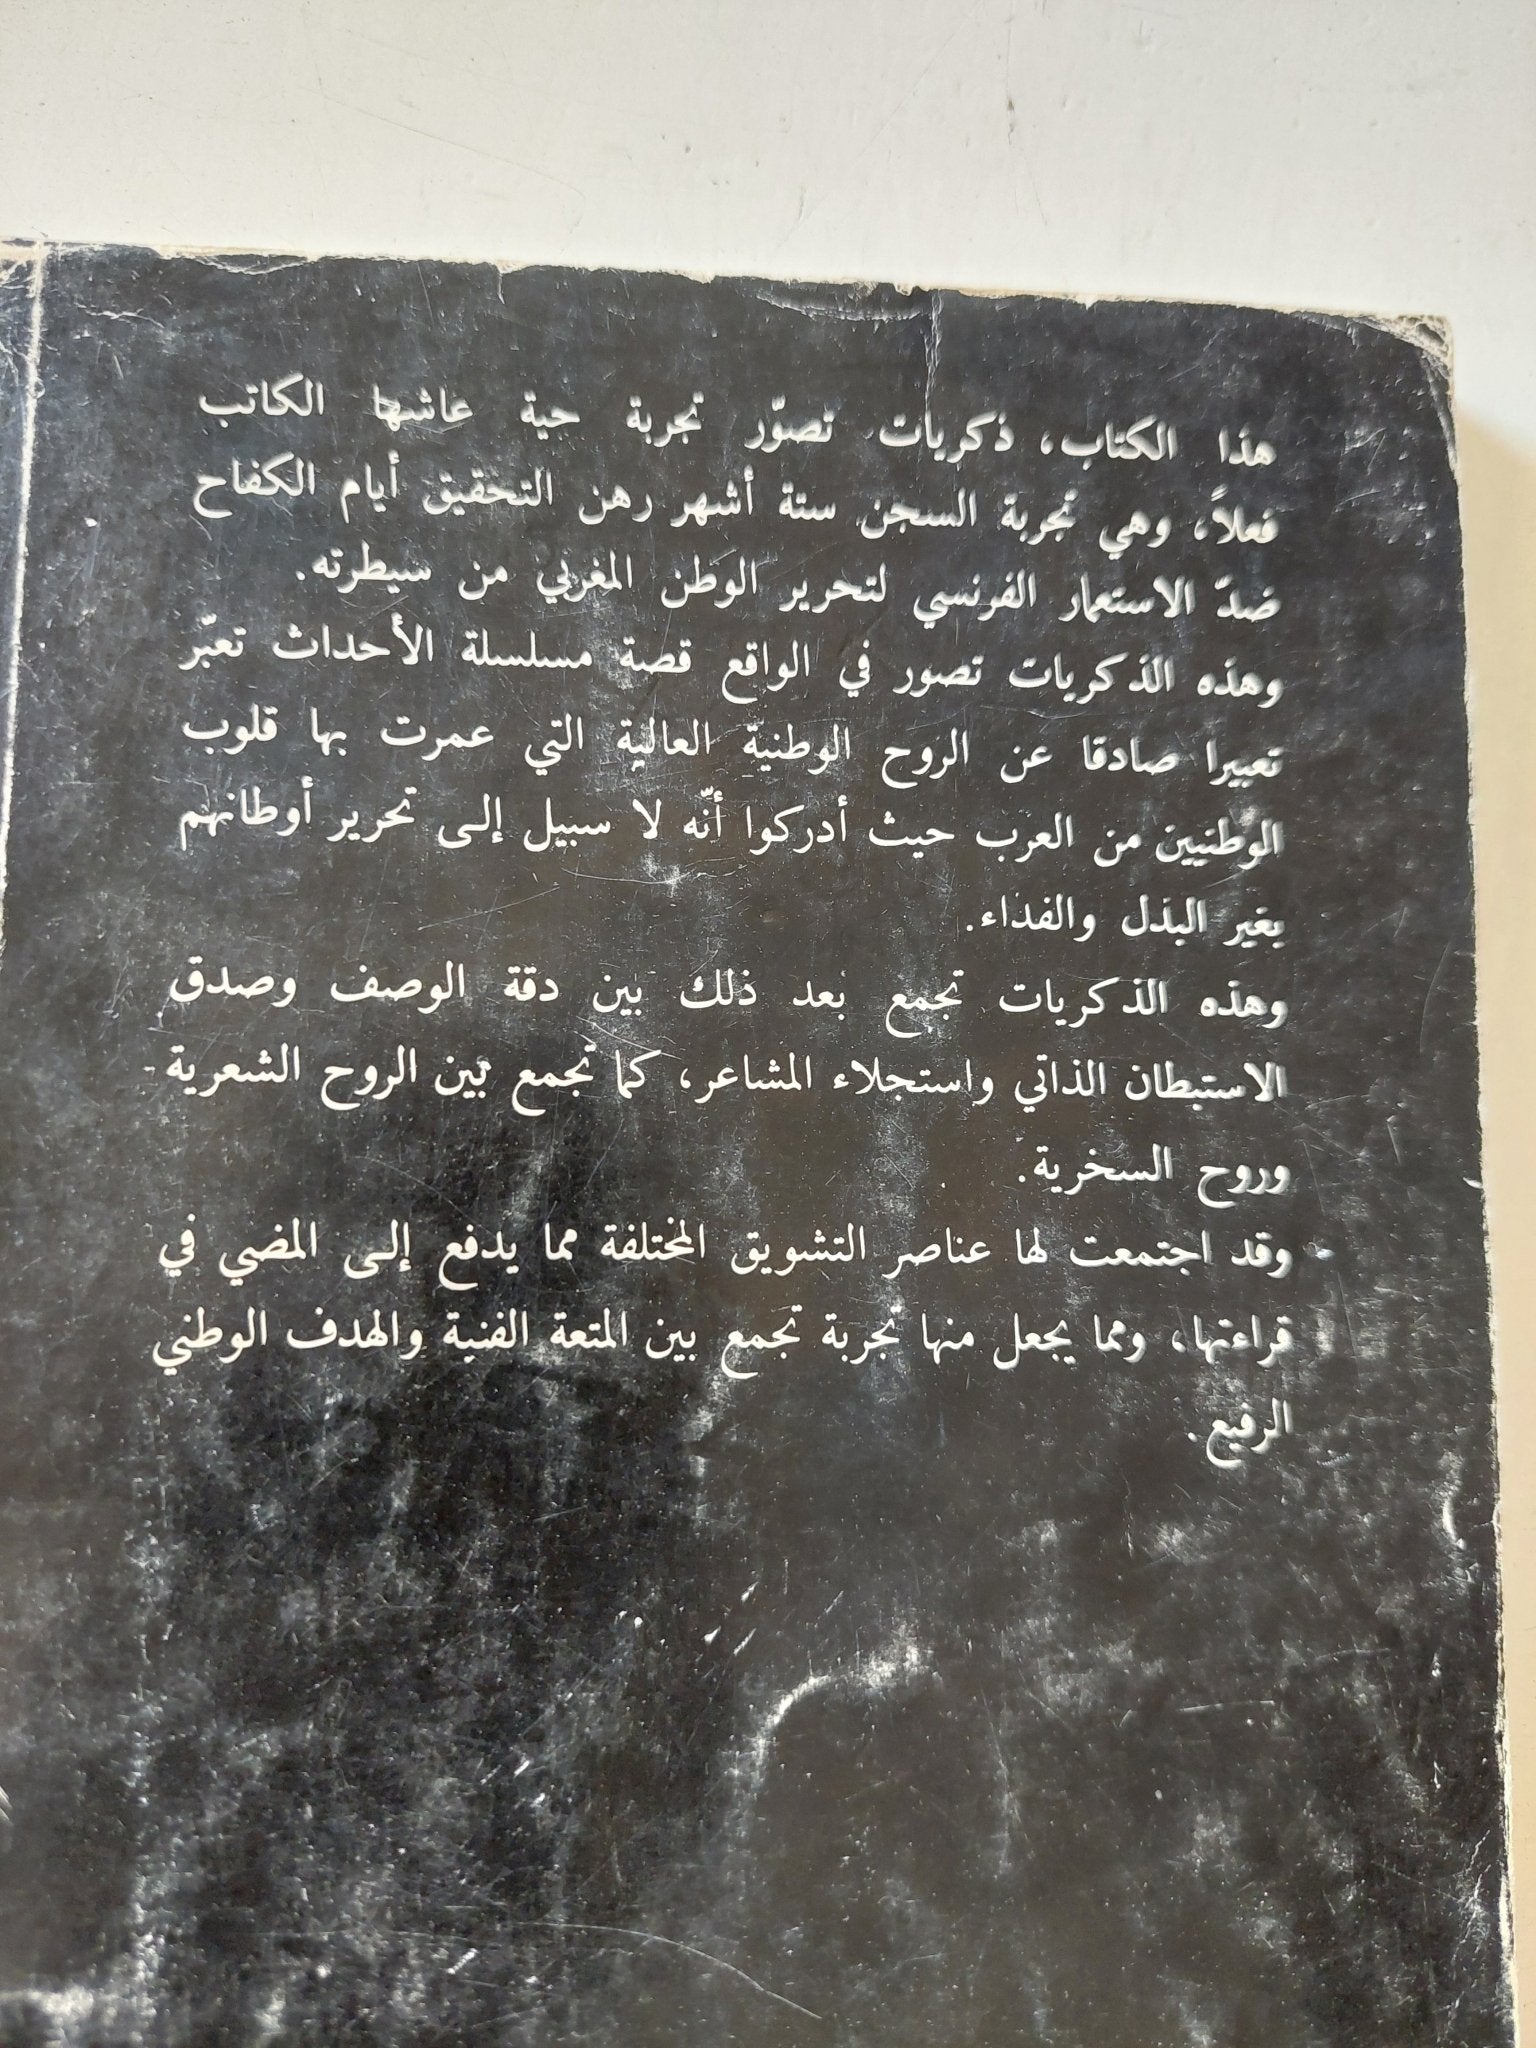 هذا الكتاب، ذكريات تصوّر تجربة حية عاشها الكاتب
فعلاً، وهي تجربة السجن ستة أشهر رهن التحقيق أيام الكفاح
ضدّ الاستعمار الفرنسي لتحرير الوطن المغربي من سيطرته.
وهذه الذكريات تصور في الواقع قصة مسلسلة الأحداث تعبّر
تعبيرا صادقا عن الروح الوطنية العالية التي عمرت بها قلوب
الوطنيين من العرب حيث أدركوا أنّه لا سبيل إلى تحرير أوطانهم
بغير البذل والفداء.
وهذه الذكريات تجمع بعد ذلك بين دقة الوصف وصدق
الاستبطان الذاتي واستجلاء المشاعر، كما تجمع بين الروح الشعرية
وروح السخرية.
وقد اجتمعت لها عناصر التشويق المختلفة مما يدفع إلى المضي في
قراءتها، ومما يجعل منها تجربة تجمع بين المتعة الفنية والهدف الوطني
الرفيع.